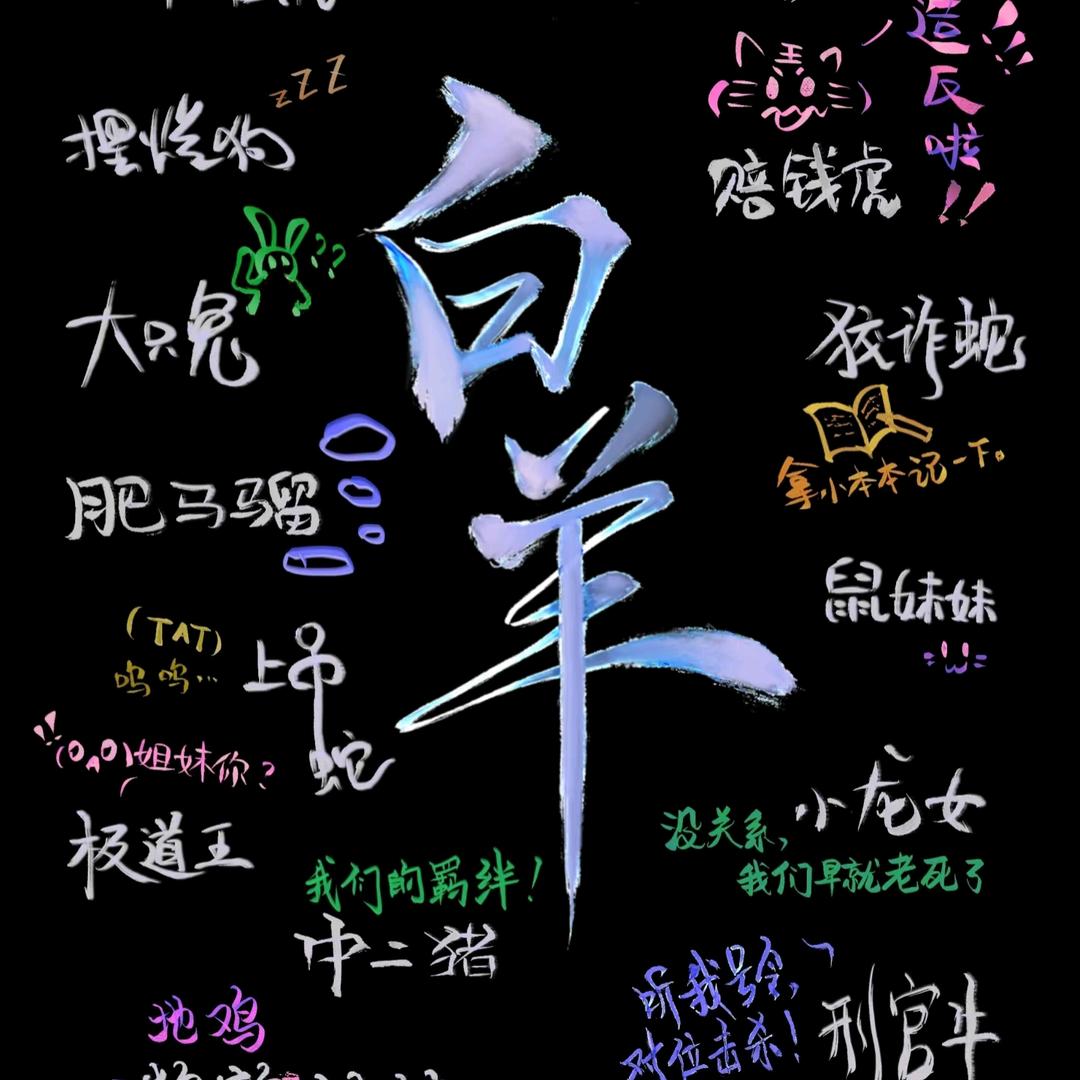 造反啦!!
zZZ
摆烂狗
赔钱虎
白羊
??
大只兔
狡诈蛇
拿小本本记一下。
肥马骝
鼠妹妹
(TAT)
呜呜…
上吊蛇
!!(OAO)姐妹你?
小龙女
极道王
没关系,
我们早就老死了
我们的羁绊!
中二猪
听我号令,
对位击杀!
刑官牛
地鸡